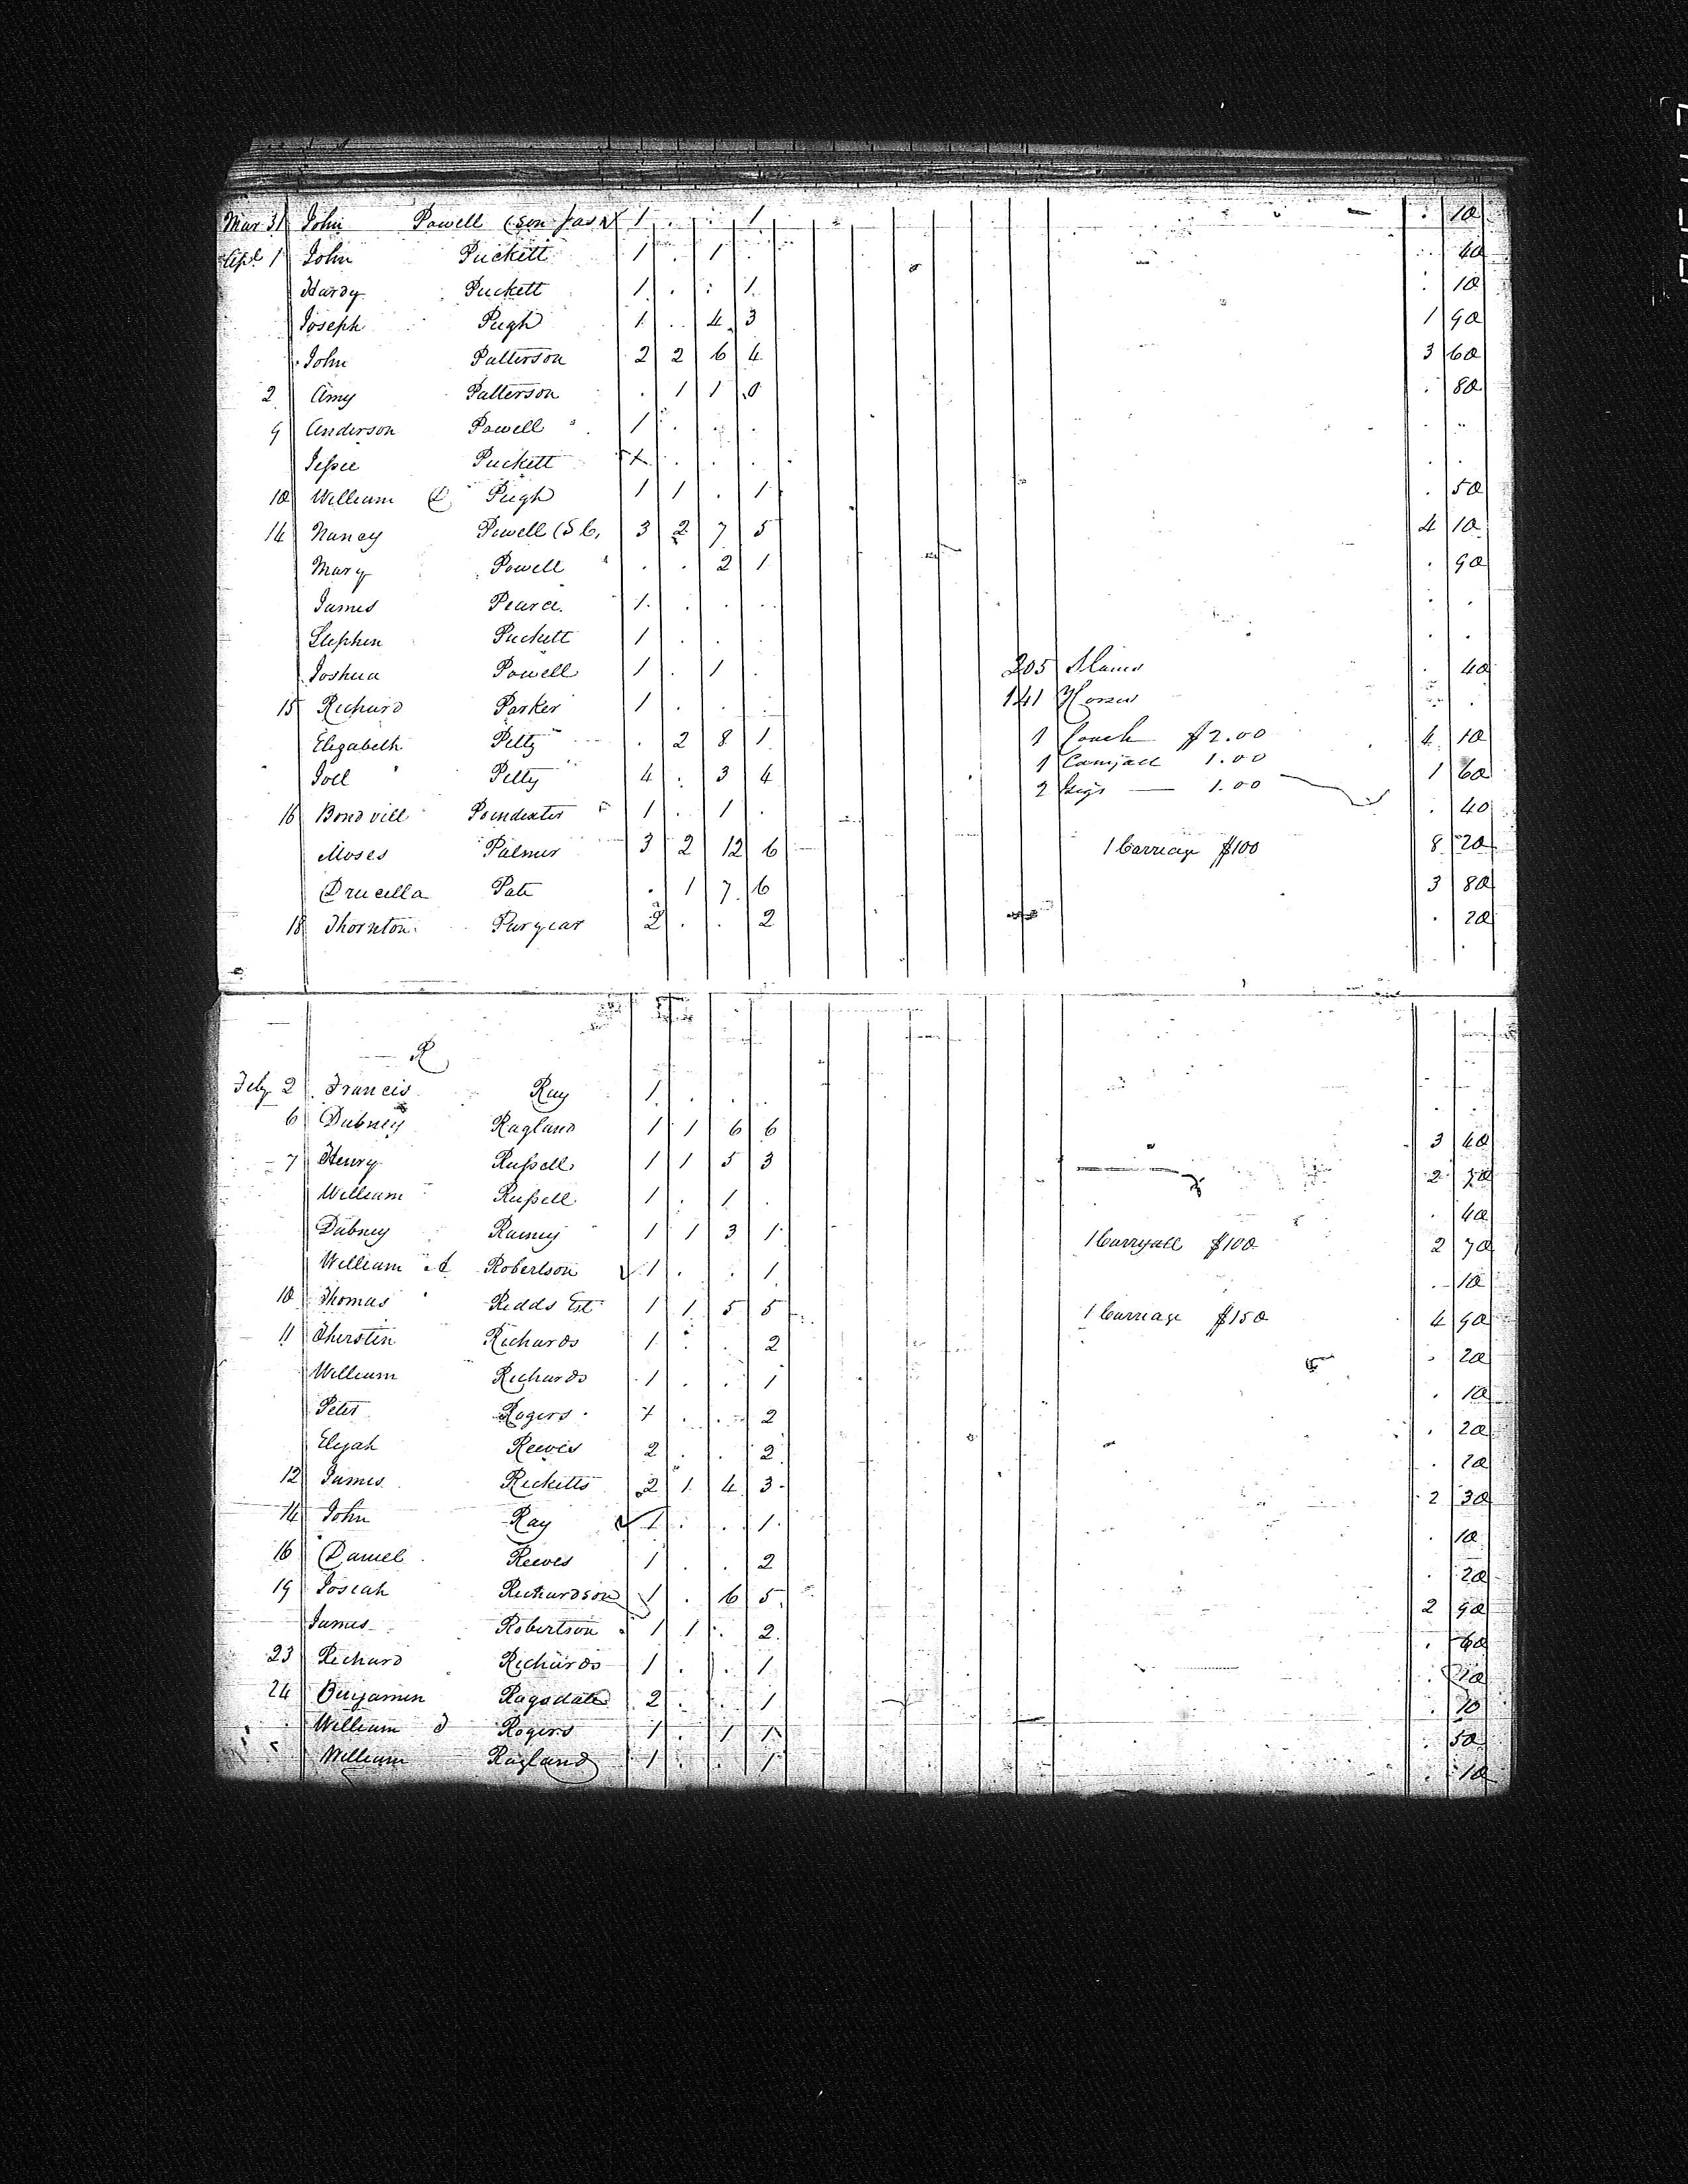 Mar 31 John Powell (son Jas 1 . . 1 . 10
Apl 1 John Puckett 1 . 1 . . 40
Hardy Puckett 1 . . 1 . 10
Joseph Pugh 1 . 4 3 1 90
John Patterson 2 2 6 4 3 60
2 Amy Patterson . 1 1 0 . 80
9 Anderson Powell 1 . . . . .
Jessee Puckett . . . . .
10 William D Pugh 1 1 . 1 . 50
14 Nancy Powell (S C, 3 2 7 5 4 10
Mary Powell . . 2 1 . 90
James Pearce 1 . . . . .
Stephen Puckett 1 . . . . .
Joshua Powell 1 . 1 . 205 Slaves . 40
15 Richard Parker 1 . . . 141 Horses . .
Elizabeth Petty . 2 8 1 1 Coach $2.00 4 10
1 Carryall 1.00
Joel Petty 4 . 3 4 2 Gigs — 1.00 1 60
16 Bondvill Poindexter 1 . 1 . . 40
Moses Palmer 3 2 12 6 1 Carriage $100 8 20
Drucilla Pate . 1 7 6 3 80
18 Thornton Puryear 2 . . 2 . 20
R
Feby 2 Francis Ray 1 . . . . .
6 Dabney Ragland 1 1 6 6 3 40
7 Henry Russell 1 1 5 3 2
William Russell 1 . 1 . . 40
Dabney Ramey 1 1 3 1 1 Carryall $100 2 70
William A Robertson ✓ 1 . . 1 . 10
10 Thomas Redds Est 1 1 5 5 1 Carriage $150 4 90
11 Therstin Richards 1 . . 2 . 20
William Richards 1 . . 1 . 10
Peter Rogers + . . 2 . 20
Elijah Reeves 2 . . 2 . 20
12 James Ricketts 2 1 4 3 2 30
14 John Ray ✓ 1 . . 1 . 10
16 Daniel Reeves 1 . . 2 . 20
19 Josiah Richardson 1 . 6 5 2 90
James Robertson 1 1 . 2 . 60
23 Richard Richards 1 . . 1 .
24 Benjamin Ragsdale 2 . . 1 . 10
William D Rogers 1 . 1 1 . 50
William Ragland 1 . . 1 . 10